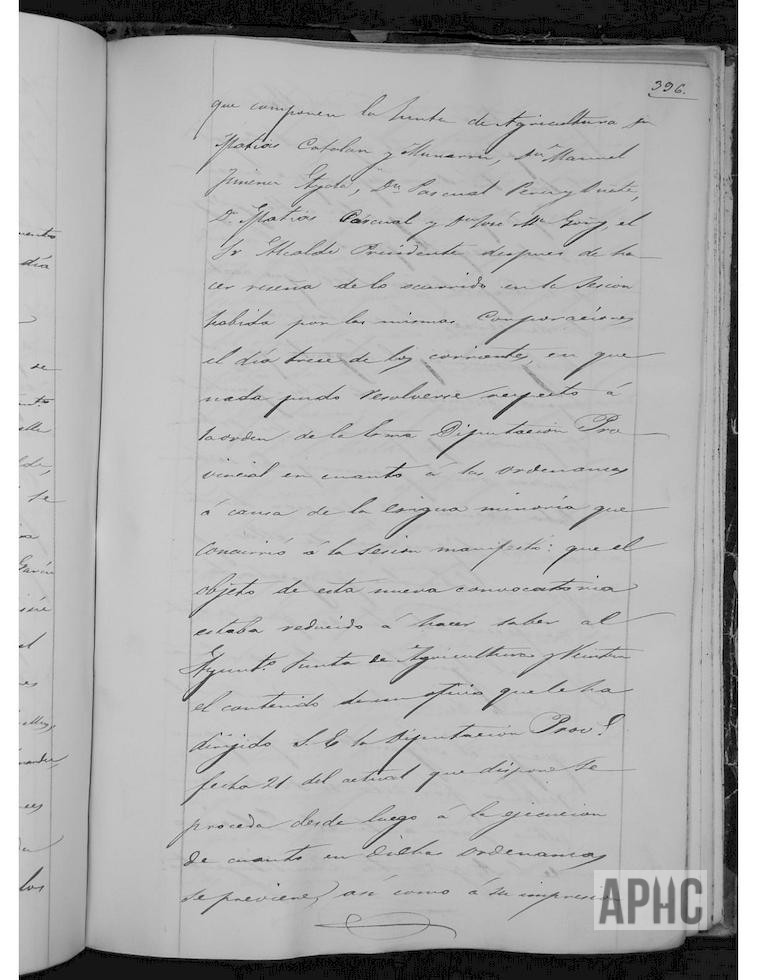 396.
que componen la Junta de Agricultura Dn
Matias Catalan y Munarriz, Dn Manuel
Jimenez Ayala, Dn Pascual Perez y Duete,
Dn Matias Pascual y Dn José Mª Goñy, el
Sr Alcalde Presidente despues de ha-
cer reseña de lo ocurrido en la Sesion
habida por las mismas Corporaciones
el día trece de los corrientes, en que
nada pudo resolverse respecto á
la orden de la Excma Diputacion Pro-
vincial en cuanto á las ordenanzas
á causa de la exigua minoría que
concurrió á la sesion manifestó: que el
objeto de esta nueva convocatoria
estaba reducido á hacer saber al
Ayuntº Junta de Agricultura y Veintena
el contenido de un oficio que le ha
dirigido S.E. la Diputacion Provl
fecha 21 del actual que dispone se
proceda desde luego á la ejecucion
de cuanto en dichas ordenanzas
se previene, asi como á su impresion
APHC